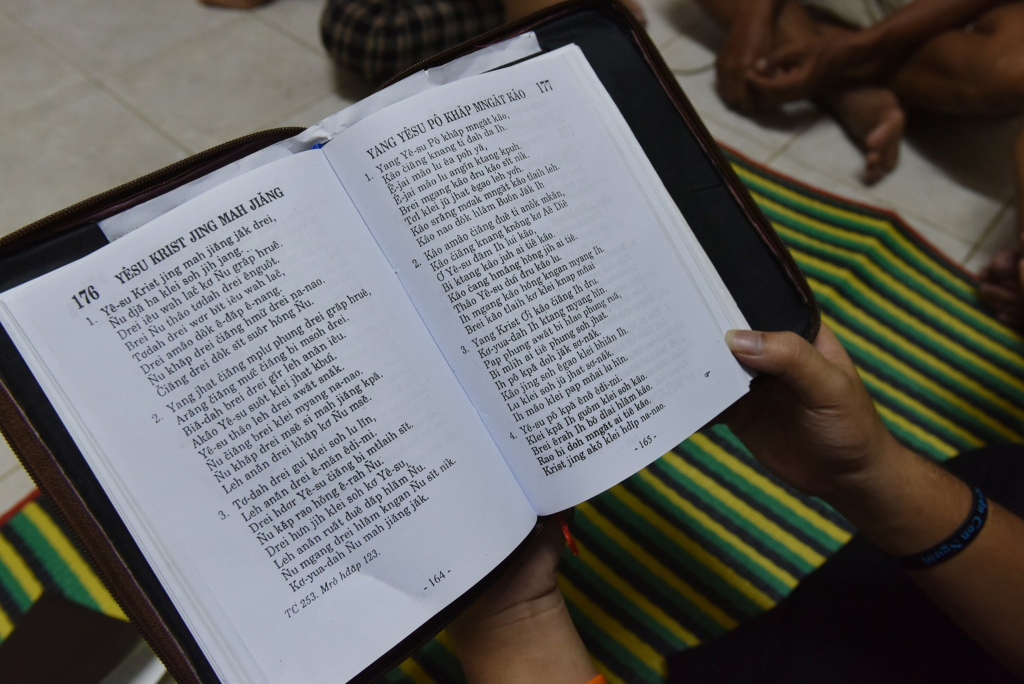 176 YĒSU KRIST JING MAH JIĂNG
1. Yê-su Krist jing mah jiăng jăk drei,
Ñu djă ba klei soh jih jang.
Drei iêu wah lač kơ Ñu grăp hruê.
Brei Ñu thâo kơdah drei êngŭot.
Tơdah drei wơr bit iêu wah lač,
Drei amâo dôk ê-đăp ê-nang,
Ñu khăp drei čiăng hmư̆ drei na-nao.
Čiăng drei dôk sĭt suôr hŏng Ñu.
2. Yang jhat čiăng mplư phung drei grăp hruê,
Arăng čiăng muič čiăng bi msoh drei.
Biă-dah brei drei gĭr leh anăn iêu.
Akăo Yê-su suôt klei jhat khuĭ.
Yê-su thâo leh drei awăt anăk.
Ñu čiăng brei klei myang na-nao.
Ñu khăp drei msĕ si mah jiăng kpă.
Leh anăn drei khăp kơ Ñu msĕ.
3. Tơ-dah drei gui klei soh lu lĭn,
Leh anăn drei ê-măn êdi-mi.
Drei hdơr Yê-su čiăng bi mlaih sĭt.
Ñu kăp rao hŏng ê-rah Ñu.
Drei hưn jih klei soh kơ Yê-su,
Leh anăn ruăt đuĕ dăp hlăm Ñu.
Ñu mgang drei hlăm kngan Ñu sĭt nik.
Kơ-yua-dah Ñu mah jiăng jăk.
TC 253. Mrô hdăp 123.
- 164 -
YANG YÊSU PÔ KHĂP MNGĂT KÂO 177
1. Yang Yê-su Pô khăp mngăt kâo,
Kâo čiăng knang ti dah da Ih.
Ê-jai mâo lu êa poh yă,
Ê-jai mâo lu angĭn ktang kpuh.
Brei mgang kâo dru kâo sĭt nik.
Tơl klei jŭ jhat êgao leh yoh.
Kâo srăng mơak mngăt kâo tlaih leh.
Kâo nao dôk hlăm Buôn Jăk Ih
2. Kâo amâo čiăng đuĕ ti anôk mkăn,
Kâo čiăng knang knŏng kơ Aê Diê
Ơ Yê-su đăm Ih lui kâo,
Bi ktang kâo juh ai tiê kâo,
Kâo čang hmăng hŏng jih ai tiê.
Thâo Yê-su dưi dru kâo lu.
Ih mgang kâo hŏng kngan myang Ih.
Brei kâo tlaih kơ klei knap mñai
3. Yang Krist Ơi kâo čiăng Ih dru.
Kơ-yua-dah Ih ktang myang hĭn.
Pap phung awăt bi hlao phung ruă,
Bi mlih ai tiê phung soh jhat.
Ih pô kpă dôh jăk sơ-năk.
Kâo jing soh êgao klei bhiăn Ih.
Lu klei soh jŭ jhat sơ-năk.
Ih mâo klei pap máat lu hĭn.
4. Yê-su pô kpă ênô êdi-mi.
Klei kpă Ih guôm klei soh kâo.
Brei êrah Ih bŏ dlai hlăm kâo.
Rao bi doh mngăt ai tiê kâo.
Krist jing akŏ klei hdĭp na-nao.
- 165 -
Con Người